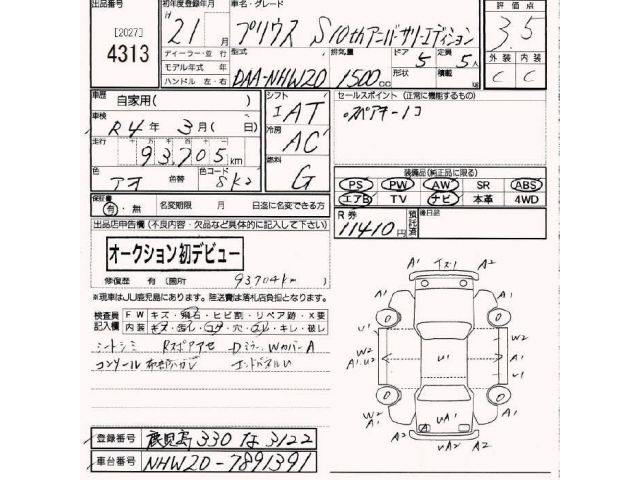 出品番号 初年度登録年月 車名・グレード 評価点
[2027] H 21年 月 プリウス S 10thアニバーサリーエディション 3.5
4313 ディーラー・並行 型式 排気量 ドア 定員 外装 内装
モデル年式 年 DAA-NHW20 1500cc 5 5人 C C
ハンドル 左・右 形状 積載
車歴 自家用( ) シフト IAT セールスポイント (正常に機能するもの)
車検 R4年 3月( 日) 冷房 AC スペアキー1コ
走行 93,705km 燃料 G
色 アオ 色替 色コード 8K2
装備品(純正品に限る)
PS PW AW SR ABS
エアB TV ナビ 本革 4WD
保証書 有・無 名変期限 月 日迄に名変できる方
R券 11410円 預託済 後日品
出品店申告欄 (不良内容・欠品など具体的に記入して下さい)
オークション初デビュー
修復歴 有 (箇所 93704km )
※現車はJU鹿児島にあります。陸送費は落札店負担となります。
検査員記入欄 FW キズ・飛石・ヒビ割・リペア跡・X要
内装 キズ・汚イ・コゲ・穴・スレ・キレ・破レ
シートシミ Rスポアアセ Dミラー、WカバーA
コンソール エンドパネルU
A1 キズ1 A2
A1 A1
U1 W2
W2 A1.U2 U1 A2
U1
W2 A1 A1
A2 UA1 A2
UA2
登録番号 鹿児島 330 な 3122
車台番号 NHW20-7891391